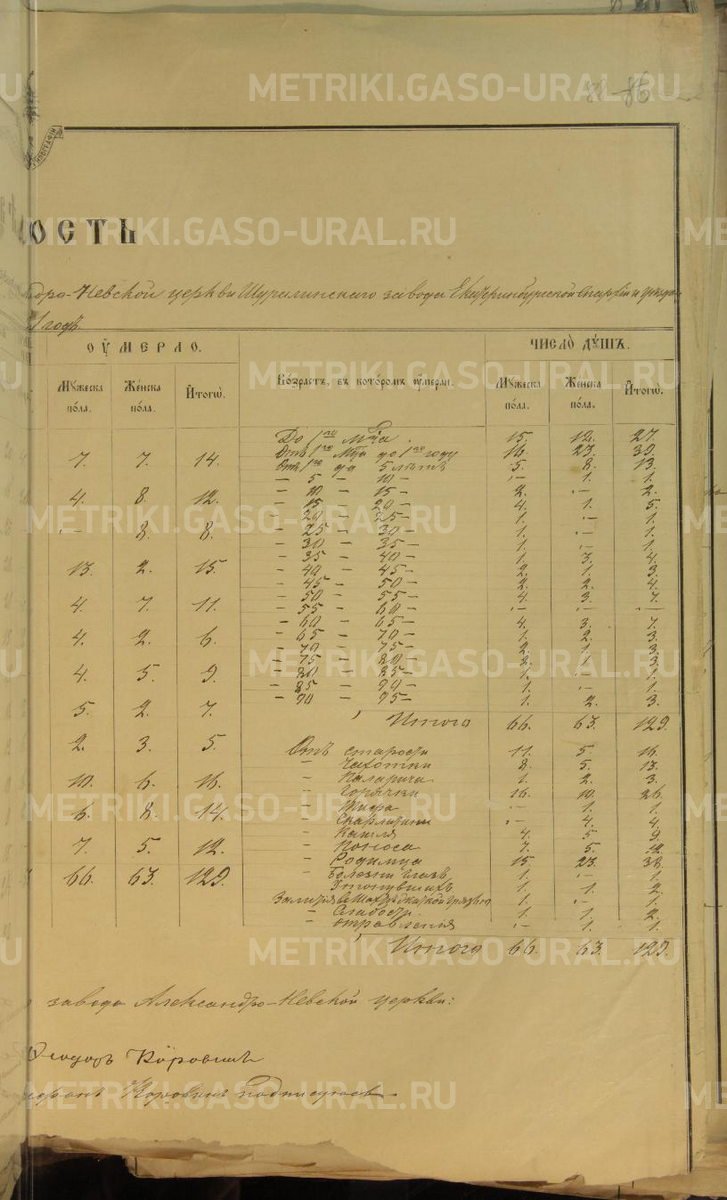 85 86
ОСТЬ
дро-Невской церкви Шуралинскаго завода Екатеринбургской Епархіи и уѣзда
1 годъ.
ОУМЕРЛО.
ЧИСЛО ДУШЪ.
Мужеска пола. Женска пола. Итогѡ. Возрастъ, въ которомъ умерли. Мужеска пола. Женска пола. Итогѡ.
До 1го Мца. 15. 12. 27.
7. 7. 14. Отъ 1го Мца до 1го году 16. 23. 39.
Отъ 1го до 5 лѣтъ 5. 8. 13.
– 5 – 10 – .– 1. 1.
4. 8. 12. – 10 – 15 – 2. .– 2.
– 15 – 20 – 4. 1. 5.
– 20 – 25 – 1. .– 1.
.– 8. 8. – 25 – 30 – 1. .– 1.
– 30 – 35 – 1. .– 1.
– 35 – 40 – 1. 3. 4.
13. 2. 15. – 40 – 45 – 2. 1. 3.
– 45 – 50 – 2. 2. 4.
– 50 – 55 – 4. 3. 7.
4. 7. 11. – 55 – 60 – .– .– .–
– 60 – 65 – 4. 3. 7.
4. 2. 6. – 65 – 70 – 1. 2. 3.
– 70 – 75 – 2. 1. 3.
– 75 – 80 – 2. 1. 3.
4. 5. 9. – 80 – 85 – 1. .– 1.
– 85 – 90 – 1. .– 1.
5. 2. 7. – 90 – 95 – 1. 2. 3.
Итого 66. 63. 129.
2. 3. 5. Отъ старости 11. 5. 16.
– Чахотки 8. 5. 13.
– Паралича 1. 2. 3.
10. 6. 16. – Горячки 16. 10. 26.
– Тифа .– 1. 1.
6. 8. 14. – Скарлатины .– 4. 4.
– Кашля 4. 5. 9.
7. 5. 12. – Поноса 7. 5. 12.
– Родимца 15. 23. 38.
66. 63. 129. – Болезни глазъ 1. .– 1.
– Утонувшихъ 1. 1. 2.
1. .– 1.
– Слабости 1. 1. 2.
– отравленія .– 1. 1.
Итого 66. 63. 129.
завода Александро-Невской церкви:
Ѳеодоръ Коровинъ
Коровинъ подписуюсь
METRIKI.GASO-URAL.RU